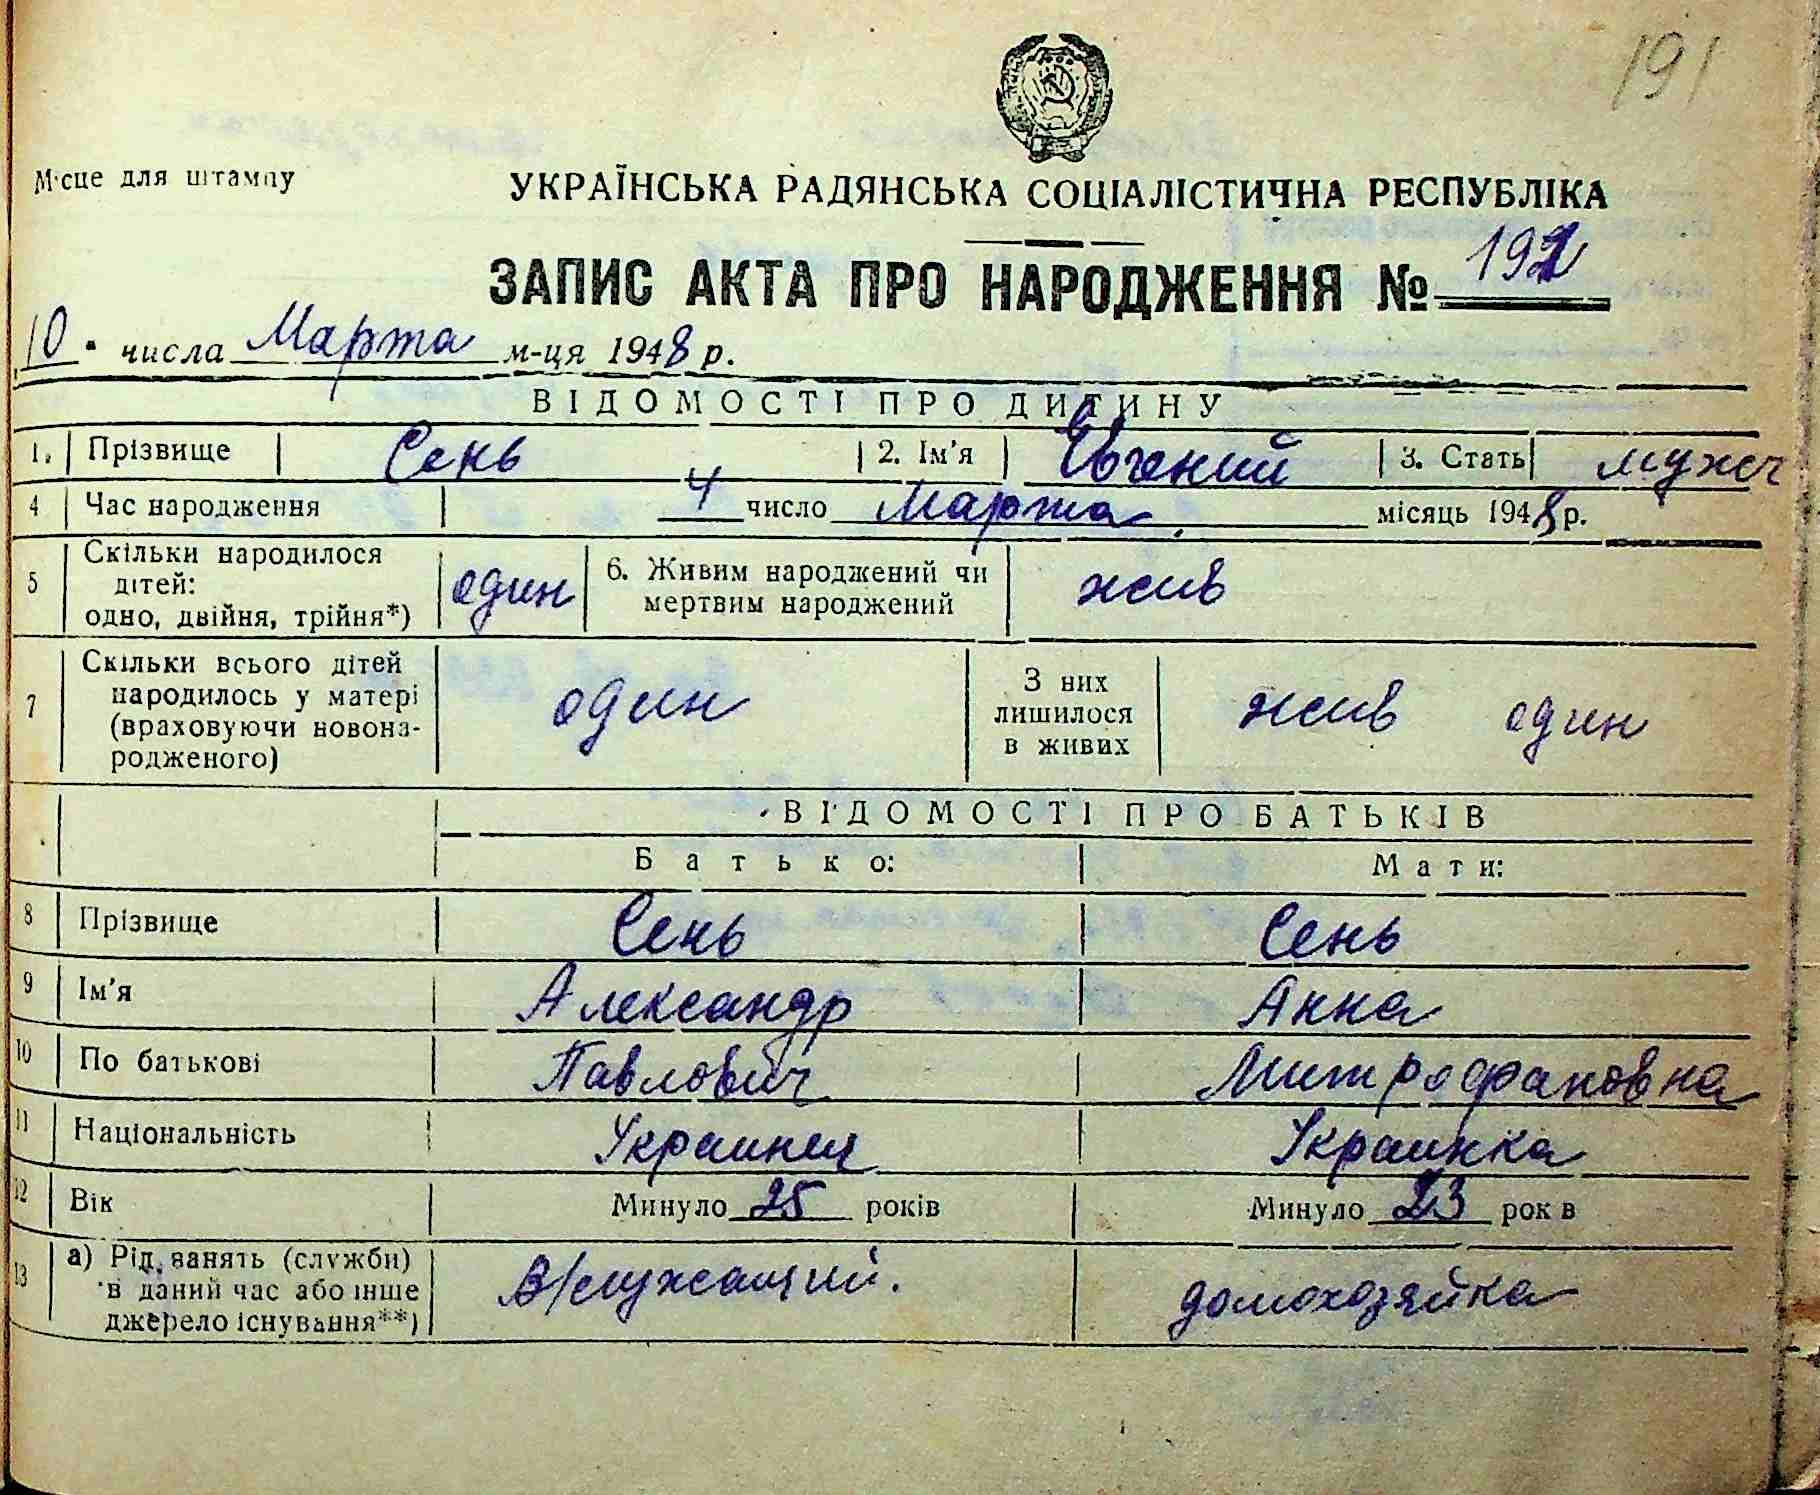 191
Місце для штампу
УКРАЇНСЬКА РАДЯНСЬКА СОЦІАЛІСТИЧНА РЕСПУБЛІКА
ЗАПИС АКТА ПРО НАРОДЖЕННЯ № 191
10 числа Марта м-ця 1948 р.
ВІДОМОСТІ ПРО ДИТИНУ
1. Прізвище Сень 2. Ім'я Евгений 3. Стать мужч
4 Час народження 4 число Марта місяць 1948 р.
5 Скільки народилося дітей: одно, двійня, трійня*) один 6. Живим народжений чи мертвим народжений жив
7 Скільки всього дітей народилось у матері (враховуючи новонародженого) один З них лишилося в живих жив один
ВІДОМОСТІ ПРО БАТЬКІВ
Батько: Мати:
8 Прізвище Сень Сень
9 Ім'я Александр Анна
10 По батькові Павлович Митрофановна
11 Національність Украинец Украинка
12 Вік Минуло 25 років Минуло 23 рок в
13 а) Рід занять (служби) в даний час або інше джерело існування**) В/служащий. домохозяйка